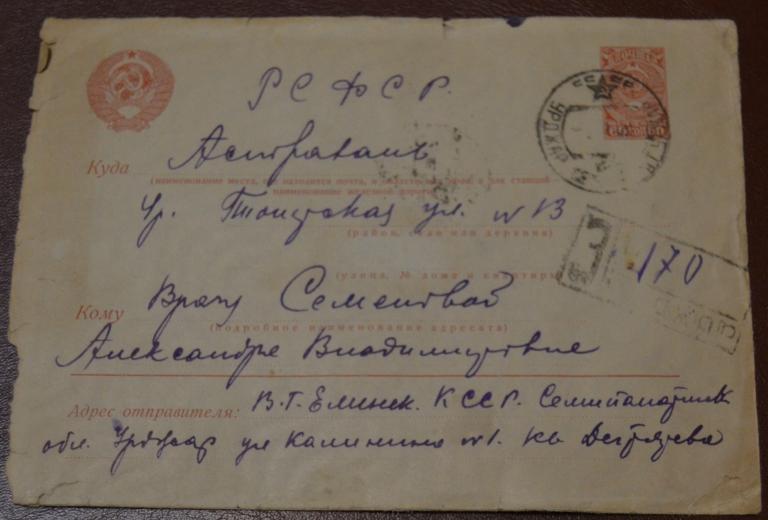 РСФСР.
ПОЧТА
60 КОП 60
Куда Астрахань
(наименование места, где находится почта, а для станций
наименование железной дороги)
Ур. ул. № 13
(район, село или деревня)
(улица, № дома и квартиры)
170
Кому Врачу Семеновой
(подробное наименование адресата)
Александре Владимировне
Адрес отправителя: В.Г. КССР. Семипалатинск
обл. Урджар ул Калинина №1. кв